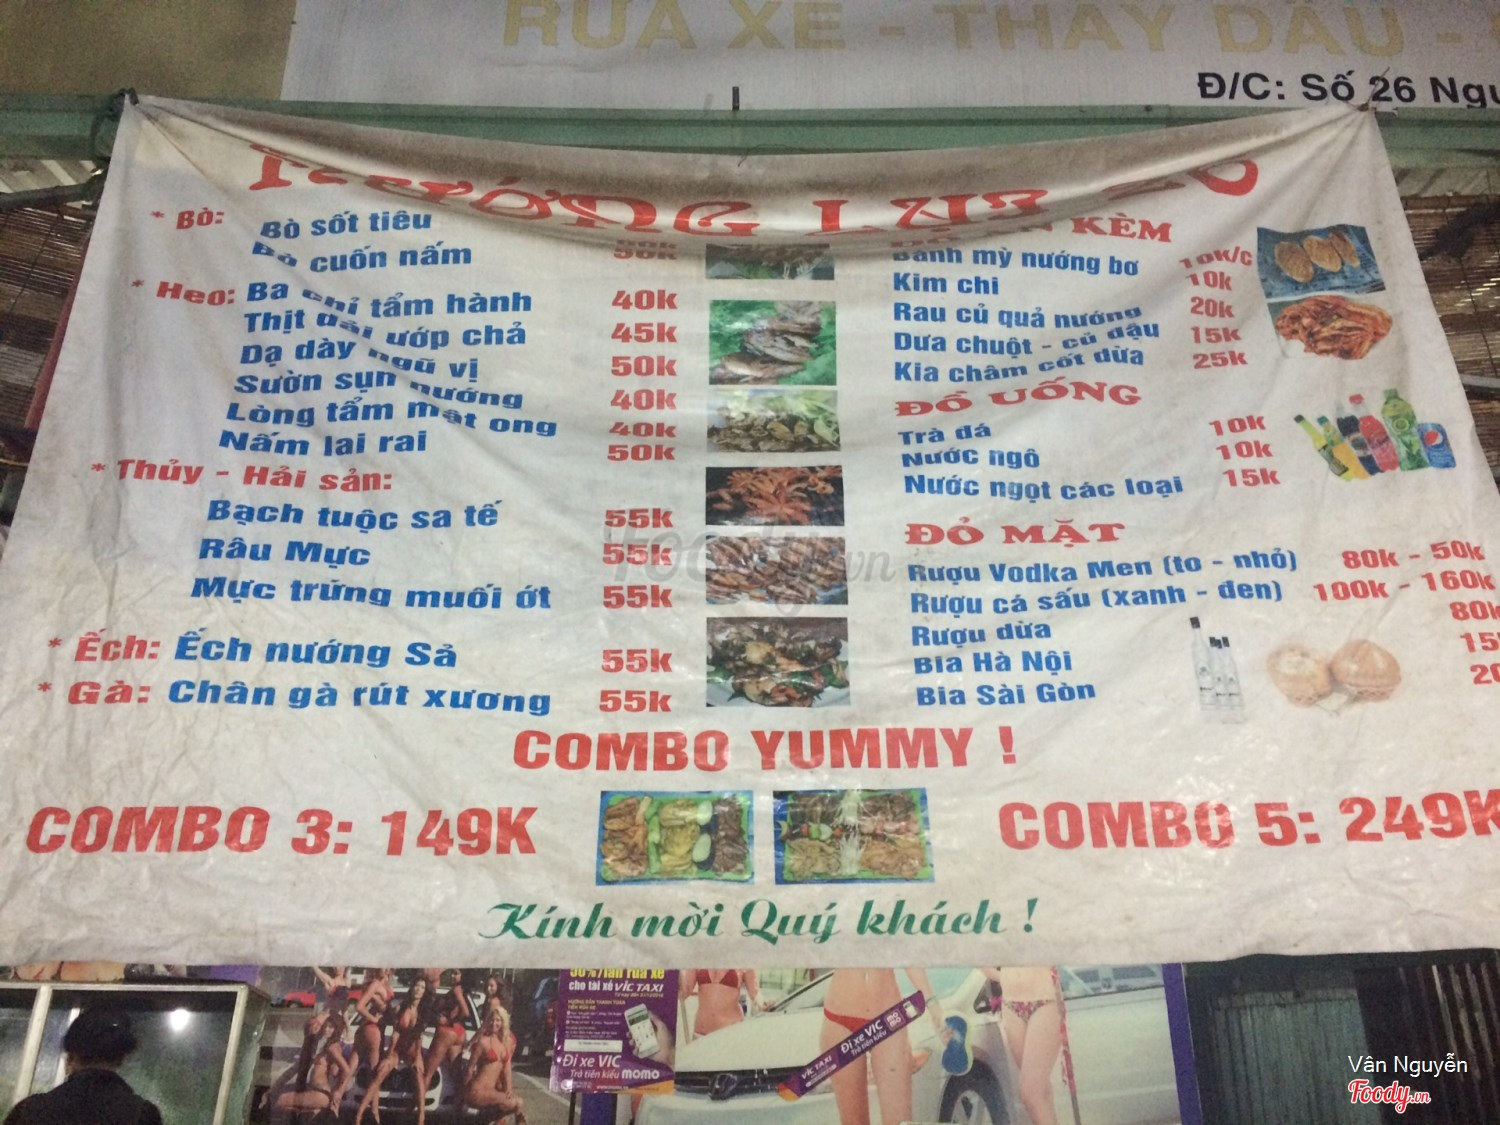 RỬA XE - THAY DẦU -
Đ/C: Số 26
* Bò: Bò sốt tiêu
Bò cuốn nấm
* Heo: Ba chỉ tẩm hành 40k
Thịt dải ướp chả 45k
Dạ dày ngũ vị 50k
Sườn sụn nướng 40k
Lòng tẩm mật ong 40k
Nấm lai rai 50k
* Thủy - Hải sản:
Bạch tuộc sa tế 55k
Râu Mực 55k
Mực trứng muối ớt 55k
* Ếch: Ếch nướng Sả 55k
* Gà: Chân gà rút xương 55k
KÈM
Bánh mỳ nướng bơ 10k/c
Kim chi 10k
Rau củ quả nướng 20k
Dưa chuột - củ đậu 15k
Kia châm cốt dừa 25k
ĐỒ UỐNG
Trà đá 10k
Nước ngô 10k
Nước ngọt các loại 15k
ĐỎ MẶT
Rượu Vodka Men (to - nhỏ) 80k - 50k
Rượu cá sấu (xanh - đen) 100k - 160k
Rượu dừa 80k
Bia Hà Nội
Bia Sài Gòn
COMBO YUMMY !
COMBO 3: 149K
COMBO 5: 249K
Kính mời Quý khách !
cho tài xế VIC TAXI
Đi xe VIC
Trả tiền kiểu MOMO
VIC TAXI
Đi xe VIC
Trả tiền kiểu
momo
Foody.vn
Vân Nguyễn
Foody.vn